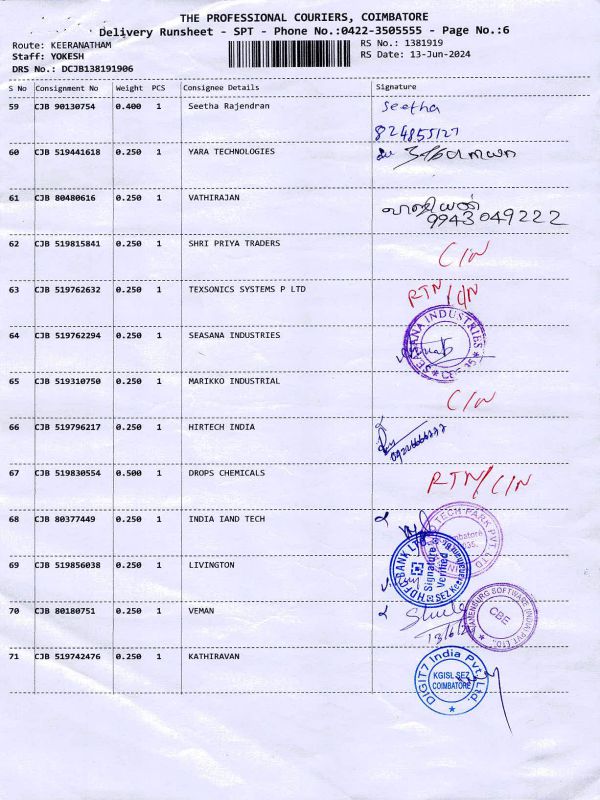 THE PROFESSIONAL COURIERS, COIMBATORE
Delivery Runsheet - SPT - Phone No.:0422-3505555 - Page No.:6
Route: KEERANATHAM RS No.: 1381919
Staff: YOKESH RS Date: 13-Jun-2024
DRS No.: DCJB138191906
S No Consignment No Weight PCS Consignee Details Signature
59 CJB 90130754 0.400 1 Seetha Rajendran Seetha
60 CJB 519441618 0.250 1 YARA TECHNOLOGIES
61 CJB 80480616 0.250 1 VATHIRAJAN
9943049222
62 CJB 519815841 0.250 1 SHRI PRIYA TRADERS C/N
63 CJB 519762632 0.250 1 TEXSONICS SYSTEMS P LTD RTN/C/N
64 CJB 519762294 0.250 1 SEASANA INDUSTRIES SEASANA INDUSTRIES
65 CJB 519310750 0.250 1 MARIKKO INDUSTRIAL C/N
66 CJB 519796217 0.250 1 HIRTECH INDIA
67 CJB 519830554 0.500 1 DROPS CHEMICALS RTN/C/N
68 CJB 80377449 0.250 1 INDIA IAND TECH TECH PARK PVT LTD
69 CJB 519856038 0.250 1 LIVINGTON HDFC BANK LTD Signature Verified SEZ
70 CJB 80180751 0.250 1 VEMAN SOFTWARE (INDIA) PVT LTD. CBE
71 CJB 519742476 0.250 1 KATHIRAVAN DIGIT7 India Pvt. Ltd. KGISL SEZ COIMBATORE